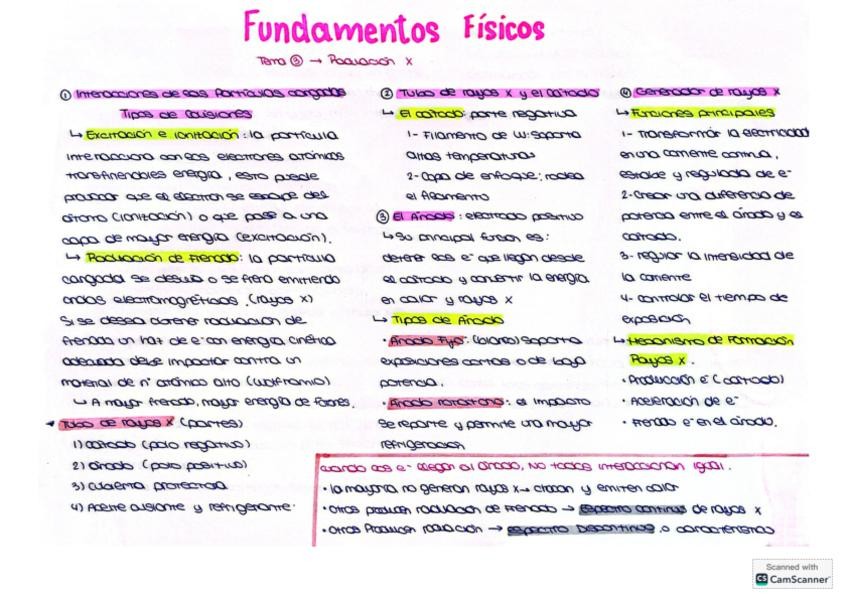 Fundamentos Físicos
Tema ③ → Radiación X
① Interacciones de las Partículas cargadas
Tipos de Colisiones
↳ Excitación e ionización: la partícula
interacciona con los electrones atómicos
transfiriendoles energía, esto puede
provocar que el electron se escape del
átomo (ionización) o que pase a una
capa de mayor energía (excitación).
↳ Radiación de Frenado: la partícula
cargada se desvía o se frena emitiendo
ondas electromagnéticas. (rayos x)
Si se desea obtener radiación de
frenado un haz de e- con energía cinética
adecuada debe impactar contra un
material de nº atómico alto (wolframio)
↳ A mayor frenado, mayor energía de fotones.
Tubo de rayos X (partes)
1) cátodo (polo negativo)
2) ánodo (polo positivo)
3) cubierta protectora
4) Aceite aislante y refrigerante.
② Tubo de rayos X y el cátodo
↳ El cátodo: parte negativa
1- Filamento de W: soporta
altas temperaturas
2- Copa de enfoque: rodea
el filamento
③ El Ánodo: electrodo positivo
↳ Su principal funcion es:
detener los e- que llegan desde
el cátodo y convertir la energía
en calor y rayos x
↳ Tipos de Ánodo
• Ánodo Fijo: Soporta
exposiciones cortas o de baja
potencia.
• Ánodo rotatorio: el impacto
se reparte y permite una mayor
refrigeración
④ Generador de rayos X
↳ Funciones principales
1- Transformar la electricidad
en una corriente continua,
estable y regulada de e-
2- Crear una diferencia de
potencia entre el ánodo y el
cátodo.
3- regular la intensidad de
la corriente
4- controlar el tiempo de
exposición
↳ Mecanismo de Formación
Rayos X.
• Producción e- (cátodo)
• Aceleración de e-
• Frenado e- en el ánodo.
cuando los e- llegan al ánodo, NO todos interaccionan igual.
• la mayoría no generan rayos x → chocan y emiten calor
• otros producen radiación de Frenado → Espectro continuo de rayos x
• Otros Producen radiación → Espectro Discontinuo o característico
Scanned with
CS CamScanner